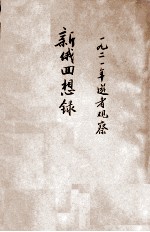 一九二一年逰者观察
新俄回想录